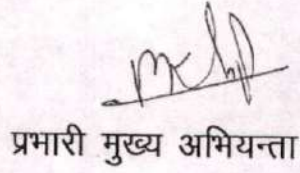 प्रभारी मुख्य अभियन्ता